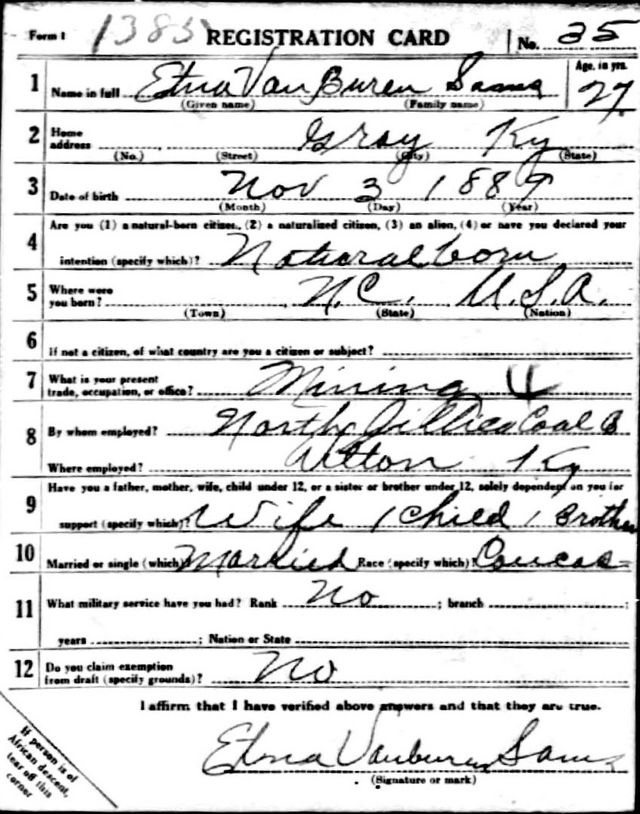 Form 1 1385 REGISTRATION CARD No. 25
1 Name in full Etna Van Buren Sams Age, in yrs. 27
(Given name) (Family name)
2 Home address Gray Ky
(No.) (Street) (City) (State)
3 Date of birth Nov 3 1889
(Month) (Day) (Year)
4 Are you (1) a natural-born citizen, (2) a naturalized citizen, (3) an alien, (4) or have you declared your
intention (specify which)? Natural born
5 Where were you born? N.C. U.S.A.
(Town) (State) (Nation)
6 If not a citizen, of what country are you a citizen or subject?
7 What is your present trade, occupation, or office? Mining 4
8 By whom employed? North Jellico Coal Co
Where employed? Ky
9 Have you a father, mother, wife, child under 12, or a sister or brother under 12, solely dependent on you for
support (specify which)? Wife 1 Child 1 Brother
10 Married or single (which) Married Race (specify which)? Caucas
11 What military service have you had? Rank No ; branch ;
years ; Nation or State
12 Do you claim exemption from draft (specify grounds)? No
I affirm that I have verified above answers and that they are true.
Etna Vanburen Sams
(Signature or mark)
If person is of
African descent,
tear off this
corner